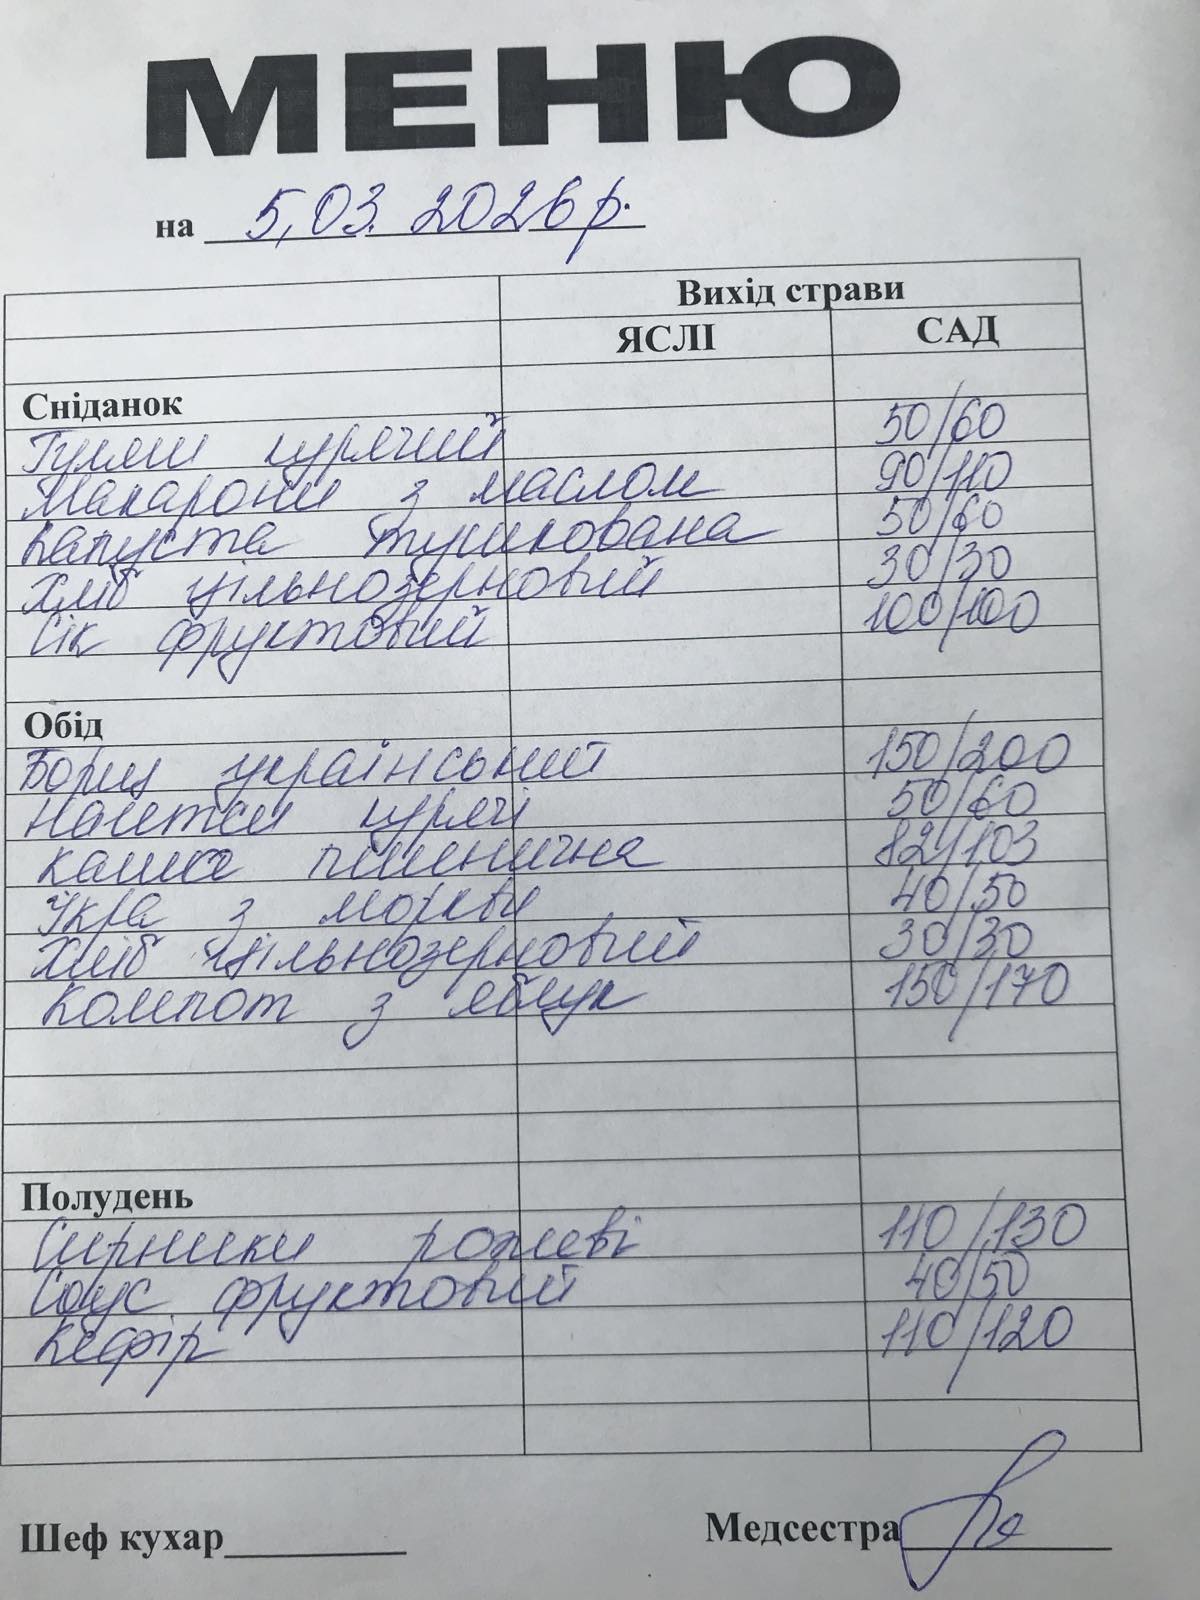 МЕНЮ
на 5,03. 2026р.
Вихід страви
ЯСЛІ САД
Сніданок
Гуляш курячий 50/60
Макарони з маслом 90/110
Капуста тушкована 50/60
Хліб цільнозерновий 30/30
Сік фруктовий 100/100
Обід
Борщ український 150/200
Нагетси курячі 50/60
Каша пшенична 82/103
Ікра з моркви 40/50
Хліб цільнозерновий 30/30
Компот з яблук 150/170
Полудень
Сирники рожеві 110/130
Соус фруктовий 40/50
Кефір 110/120
Шеф кухар Медсестра